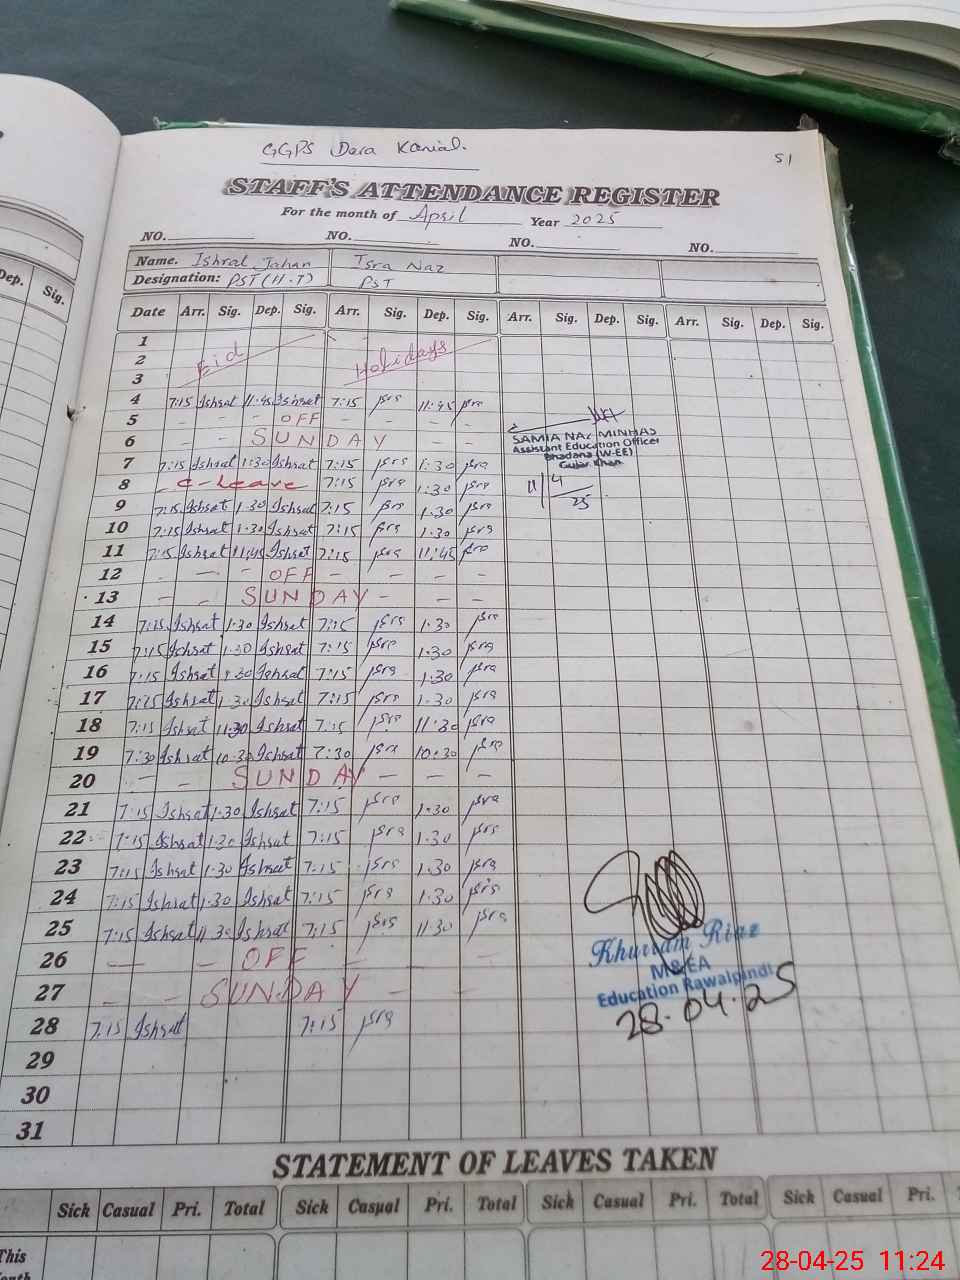 GGPS Dera Kanial.
51
STAFF'S ATTENDANCE REGISTER
For the month of April Year 2025
NO. NO. NO. NO.
Name. Ishrat Jahan Isra Naz
Designation: PST (H.T) PST
Dep. Sig.
Date Arr. Sig. Dep. Sig. Arr. Sig. Dep. Sig. Arr. Sig. Dep. Sig. Arr. Sig. Dep. Sig.
1
2 Eid Holidays
3
4 7:15 Ishrat 11:45 Ishrat 7:15 Isra 11:45 Isra
5 - - - OFF - - - -
6 - - SUNDAY - - -
SAMIA NAZ MINHAS
Assistant Education Officer
Bhadana (W-EE)
Gujar Khan
11/4/25
7 7:15 Ishrat 1:30 Ishrat 7:15 Isra 1:30 Isra
8 - C-Leave 7:15 Isra 1:30 Isra
9 7:15 Ishrat 1.30 Ishrat 7:15 Isra 1.30 Isra
10 7:15 Ishrat 1.30 Ishrat 7:15 Isra 1.30 Isra
11 7:15 Ishrat 11:45 Ishrat 7:15 Isra 11:45 Isra
12 - - - OFF - - - -
13 - - SUNDAY - - -
14 7:15 Ishrat 1.30 Ishrat 7:15 Isra 1.30 Isra
15 7:15 Ishrat 1.30 Ishrat 7:15 Isra 1.30 Isra
16 7:15 Ishrat 1.30 Ishrat 7:15 Isra 1.30 Isra
17 7:15 Ishrat 1.30 Ishrat 7:15 Isra 1.30 Isra
18 7:15 Ishrat 11:30 Ishrat 7:15 Isra 11:30 Isra
19 7:30 Ishrat 10:30 Ishrat 7:30 Isra 10:30 Isra
20 - - SUNDAY - - -
21 7:15 Ishrat 1.30 Ishrat 7:15 Isra 1.30 Isra
22 7:15 Ishrat 1.30 Ishrat 7:15 Isra 1.30 Isra
23 7:15 Ishrat 1.30 Ishrat 7:15 Isra 1.30 Isra
24 7:15 Ishrat 1.30 Ishrat 7:15 Isra 1.30 Isra
25 7:15 Ishrat 11.30 Ishrat 7:15 Isra 11.30 Isra
26 - - OFF - - -
27 - - SUNDAY - -
28 7:15 Ishrat 7:15 Isra
Khurram Riaz
M&EA
Education Rawalpindi
28.04.25
29
30
31
STATEMENT OF LEAVES TAKEN
Sick Casual Pri. Total Sick Casual Pri. Total Sick Casual Pri. Total Sick Casual Pri.
This
28-04-25 11:24